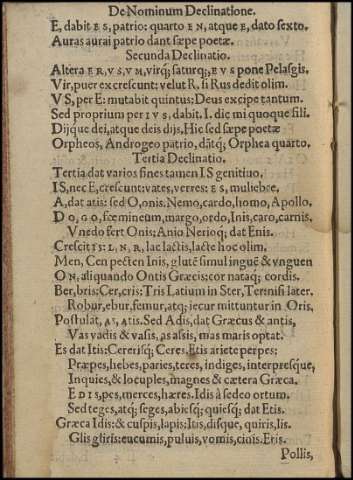 De Nominum Declinatione.
E, dabit ES, patrio: quarto EN, atque E, dato sexto.
Auras aurai patrio dant sæpe poetæ.
Secunda Declinatio.
Altera ER, VS, VM, virq; saturq;, EVS pone Pelasgis.
Vir, puer excrescunt: velut R. si Rus dedit olim.
VS, per E: mutabit quintus: Deus excipe tantum.
Sed proprium per IVS, dabit. I. dic mi quoque fili.
Dijque dei, atque deis dijs, Hic sed sæpe poetæ
Orpheos, Androgeo patrio, dātq; Orphea quarto.
Tertia Declinatio.
Tertia dat varios fines tamen IS genitiuo.
IS, nec E, crescunt: vates, verres: ES, muliebre,
A, dat atis: sed O, onis. Nemo, cardo, homo, Apollo.
DO, GO, fœmineum, margo, ordo, Inis, caro, carnis.
Vnedo fert Onis; Anio Nerioq; dat Enis.
Crescit IS: L, N, R, lac lactis, lacte hoc olim.
Men, Cen pecten Inis, glutē simul inguē & vnguen
ON, aliquando Ontis Græcis: cor nataq; cordis.
Ber, bris: Cer, cris: Tris Latium in Ster, Ternisi later.
Robur, ebur, femur, atq; iecur mittuntur in Oris.
Postulat, AS, ATIS. Sed Adis, dat Græcus & antis,
Vas vadis & vasis, as assis, mas maris optat.
Es dat Itis: Cererisq; Ceres. Etis ariete perpes:
Præpes, hebes, paries, teres, indiges, interpresque,
Inquies, & locuples, magnes & cætera Græca.
EDIS, pes, merces, hæres. Idis à sedeo ortum.
Sed teges, atq; seges, abiesq; quiesq; dat Etis.
Græca Idis: & cuspis, lapis: Itis, disque, quiris, lis.
Glis gliris: cucumis, puluis, vomis, cinis. Eris.
Pollis,